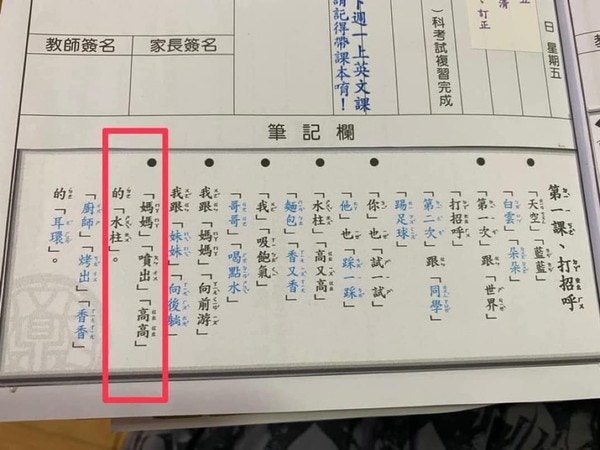 清
、訂正
日 星期五
)科考試複習完成
下週一上英文課
請記得帶課本唷!
家長簽名
教師簽名
筆記欄
第一課、打招呼
●「天空」「藍藍」
「白雲」「朵朵」
●「第一次」跟「世界」
打招呼
「第二次」跟「同學」
踢足球
●「你」也「試試」
「他」也「踩一踩」
●「水柱」「高又高」
「麵包」「香又香」
●「我」「吸飽氣」
「哥哥」「喝點水」
●我跟「媽媽」「向前游」
我跟「妹妹」「向後躺」
●「媽媽」「噴出」「高高」
的「水柱」。
「廚師」「烤出」「香香」
的「耳環」。